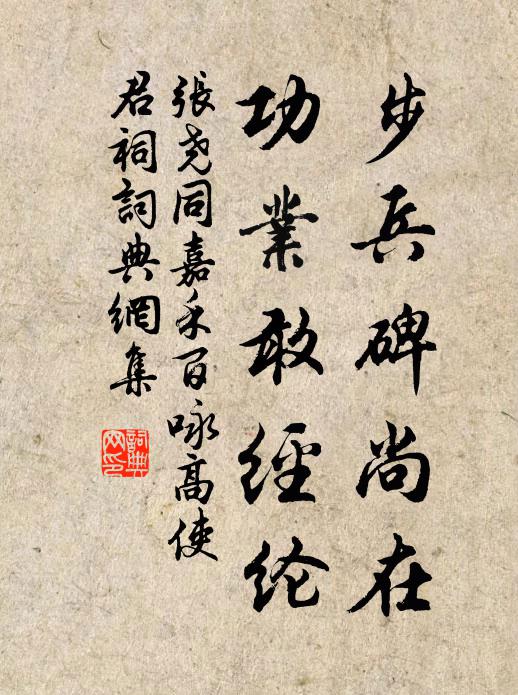 步兵碑尚在
功業敢經纶
張尧同嘉禾百咏高使
君祠詞典網集
詞典
网印